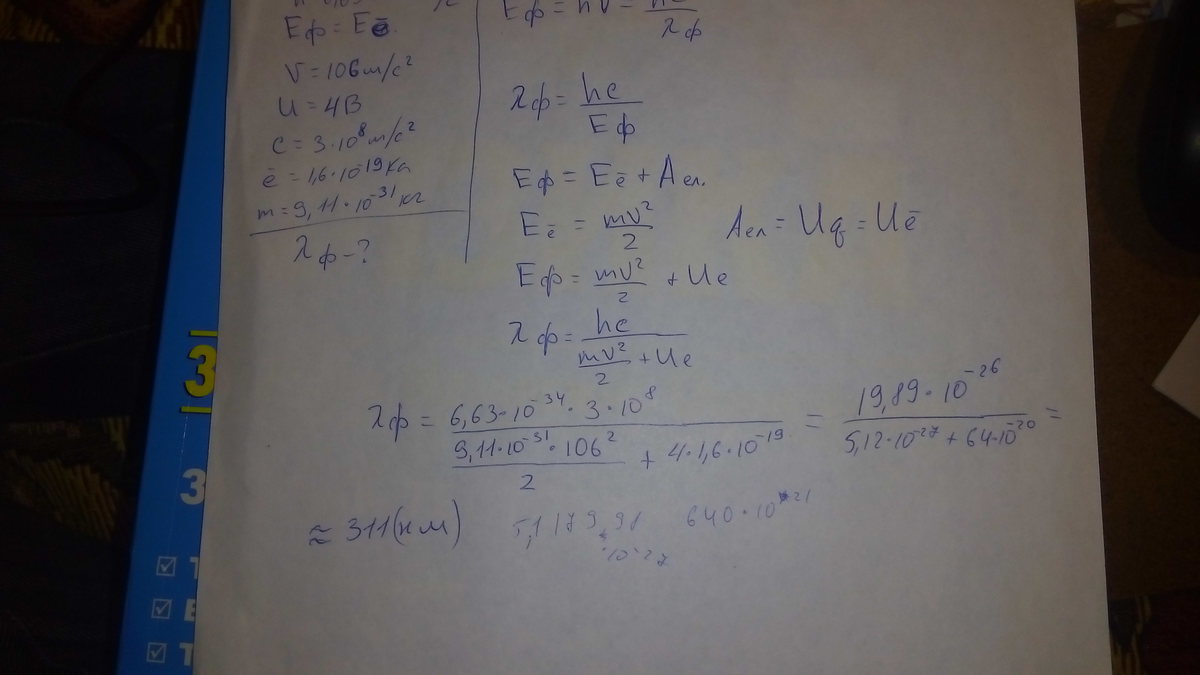 Eф = Eē.
V = 106 м/с²
U = 4В
c = 3·10⁸ м/с²
ē = 1,6·10⁻¹⁹ Кл
m = 9,11·10⁻³¹ кг
λф - ?
Eф = hν = hc/λф
λф = hc/Eф
Eф = Eē + Aел.
Eē = mv²/2 Aел = Uq = Uē
Eф = mv²/2 + Ue
λф = hc/(mv²/2 + Ue)
λф = (6,63·10⁻³⁴·3·10⁸)/((9,11·10⁻³¹·106²)/2 + 4·1,6·10⁻¹⁹) = (19,89·10⁻²⁶)/(5,12·10⁻²⁷ + 64·10⁻²⁰) =
≈ 311(нм) 640·10⁻²¹
·10⁻²⁷
3
3